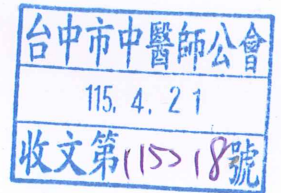 台中市中醫師公會
115. 4. 21
收文第11518號